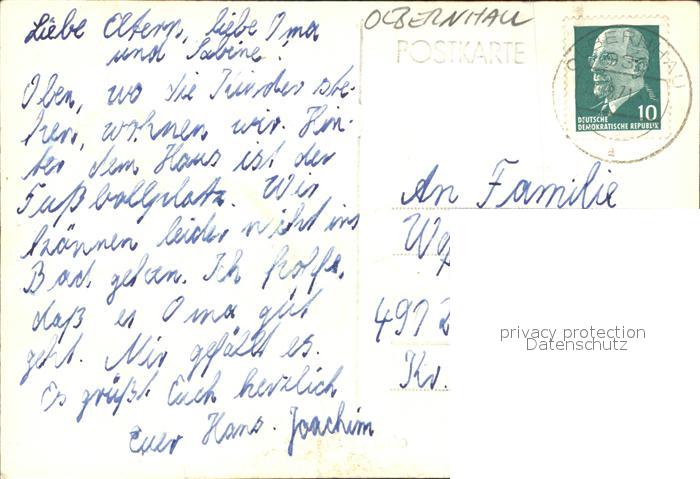 OLBERNHAU
POSTKARTE
Liebe Eltern, liebe Oma
und Sabine!
Oben, wo die Kinder ste-
hen, wohnen wir. Hin-
ter dem Haus ist der
Fußballplatz. Wir
können leider nicht ins
Bad gehen. Ich hoffe,
daß es Oma gut
geht. Mir gefällt es.
Es grüßt Euch herzlich
Euer Hans-Joachim
10
DEUTSCHE
DEMOKRATISCHE REPUBLIK
a
An Familie
4912
Kr.
privacy protection
Datenschutz